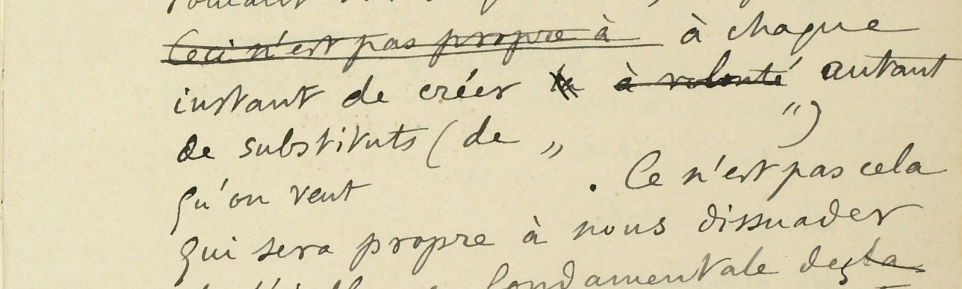 Ceci n'est pas propre à à chaque
instant de créer à volonté autant
de substituts (de „ ")
qu'on veut . Ce n'est pas cela
qui sera propre à nous dissuader
fondamentale des la